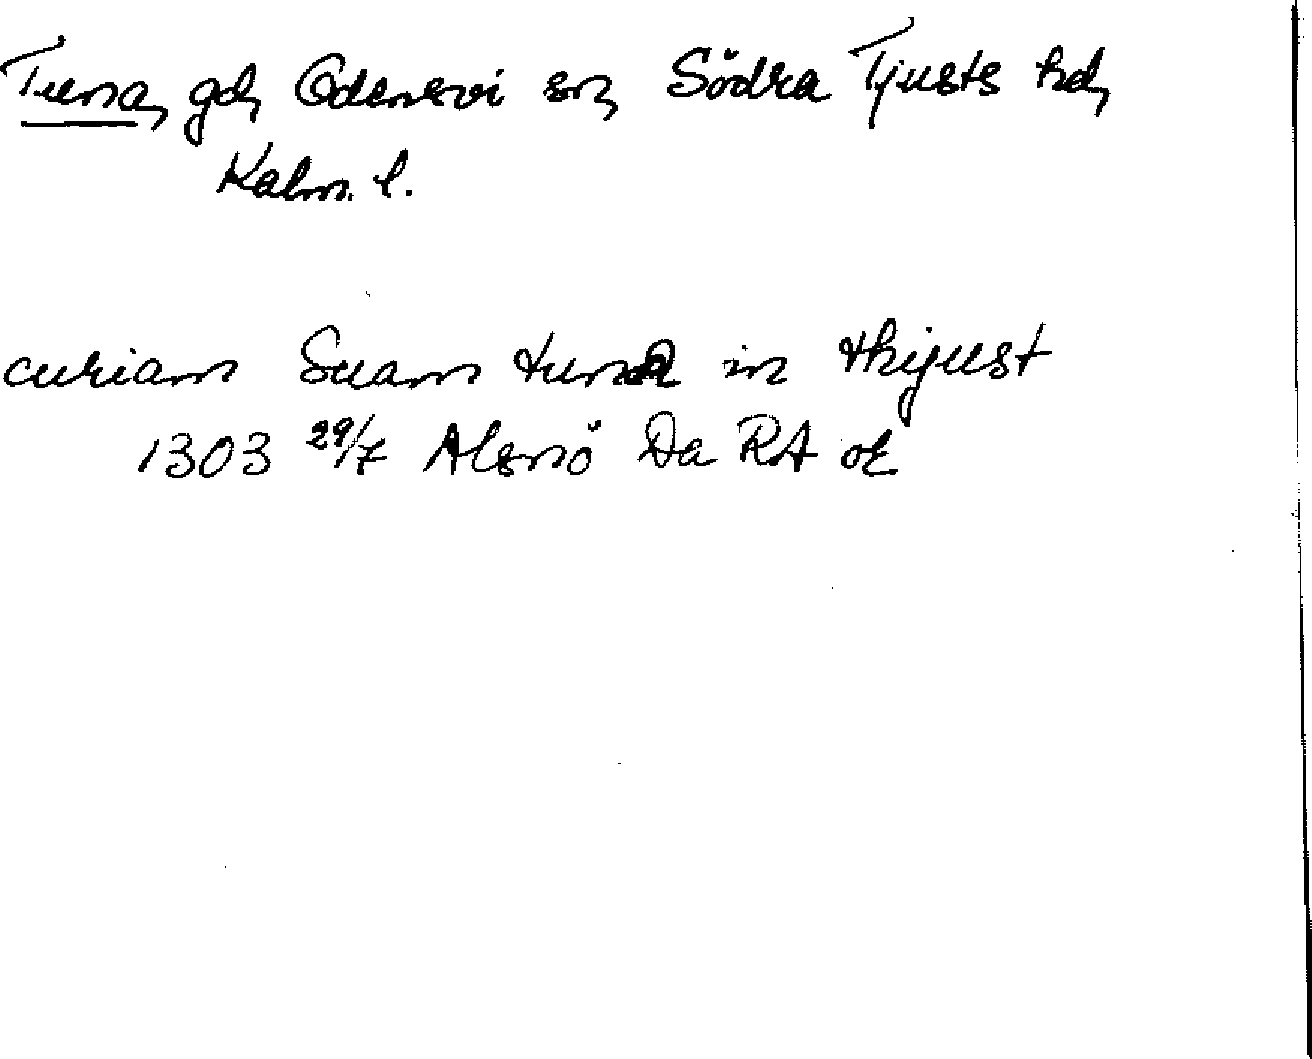 Tuna, gd, Odensvi sn, Södra Tjusts hd,
Kalm. l.
curiam Suam tuna in thyust
1303 29/7 Alsnö Da RA or